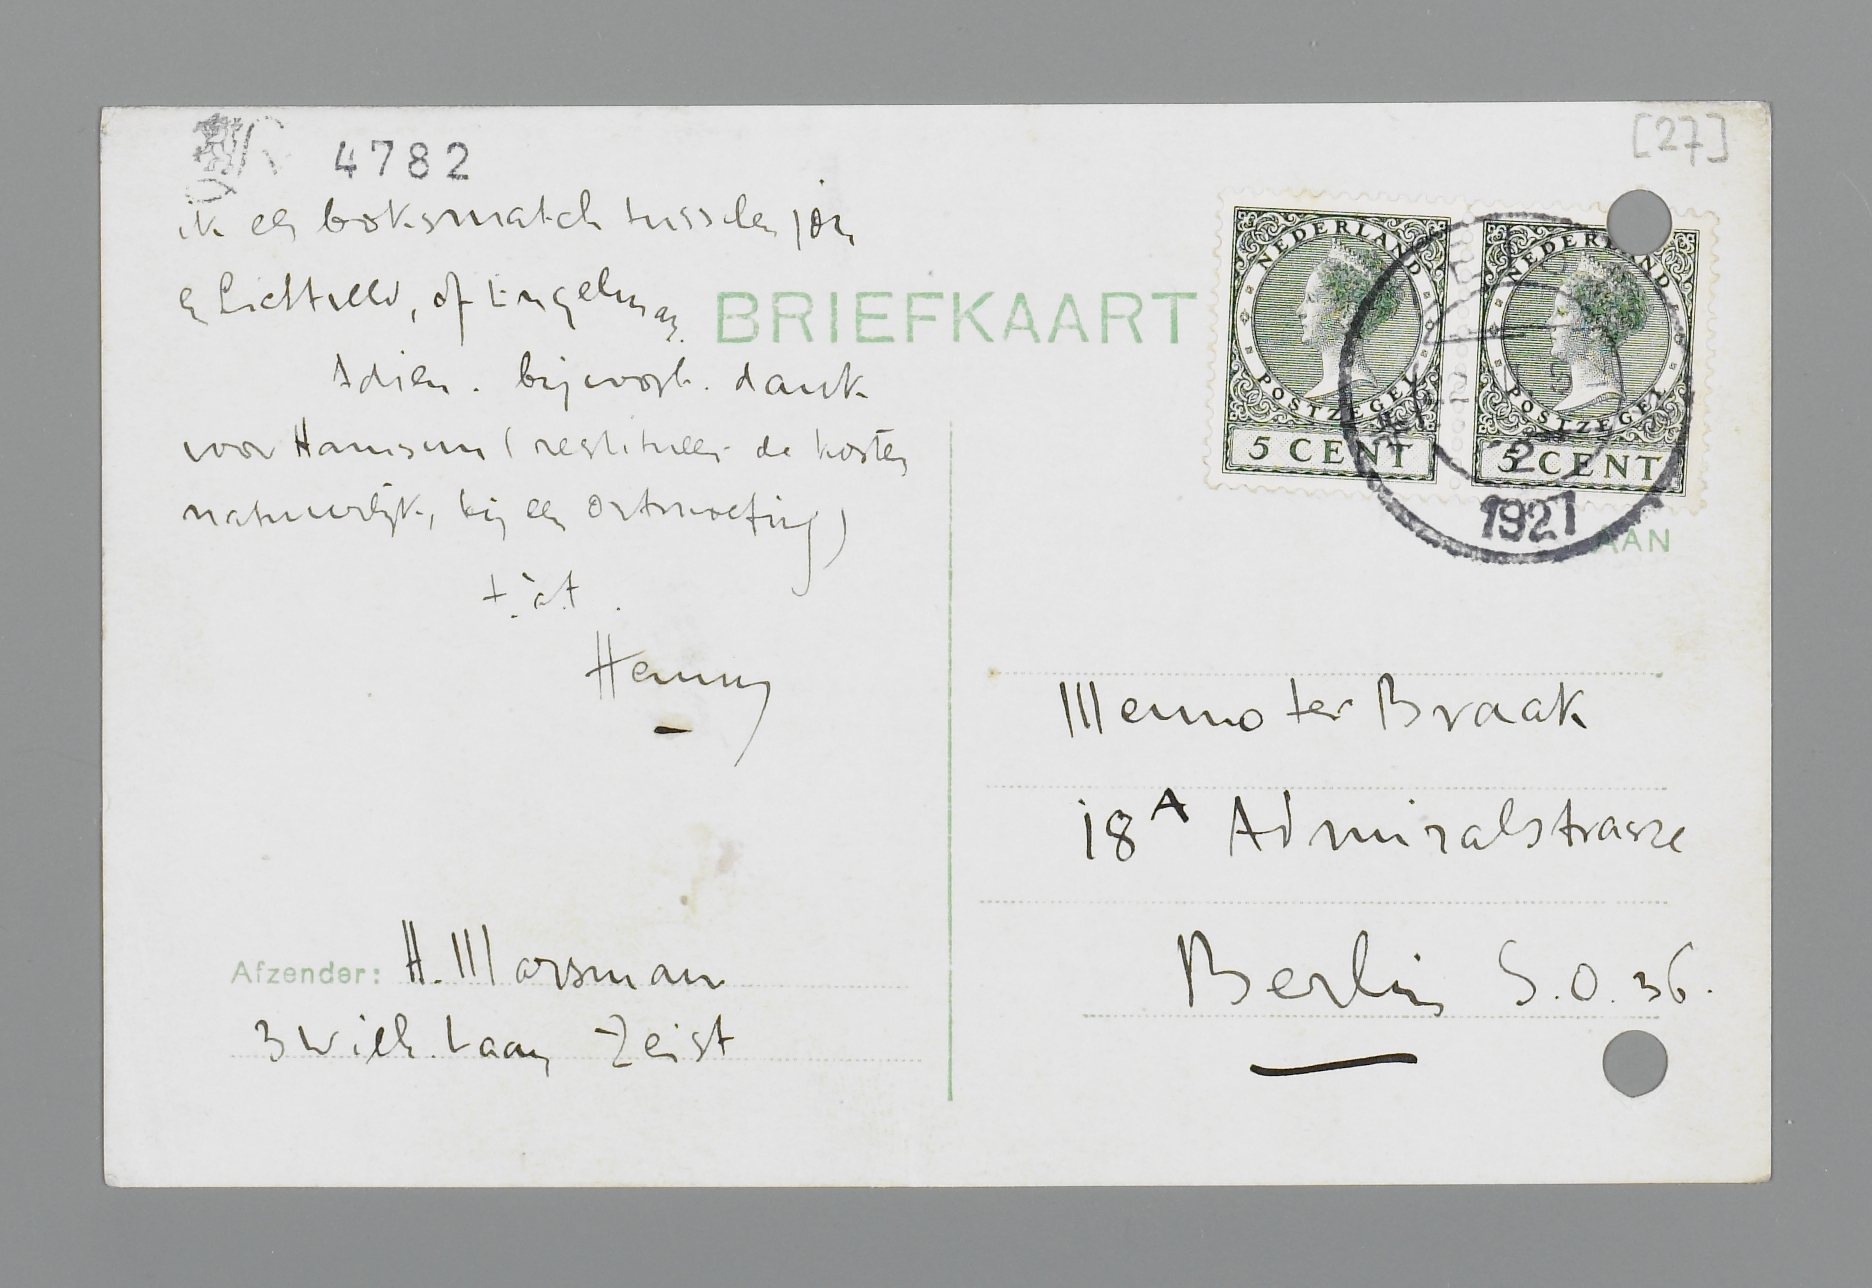 4782
[27]
ik een boksmatch tusschen jou
en Lichtveld, of Engelman.
Adieu. bij voorb. dank
voor Hamsun (restitueer de kosten
natuurlijk, bij een ontmoeting)
t.à.t.
Henny
Afzender: H. Marsman
3 Wilh. laan Zeist
BRIEFKAART
NEDERLAND
POSTZEGEL
5 CENT
NEDERLAND
POSTZEGEL
5 CENT
1927
AAN
Menno ter Braak
18A Admiralstrasze
Berlin S.O. 36.